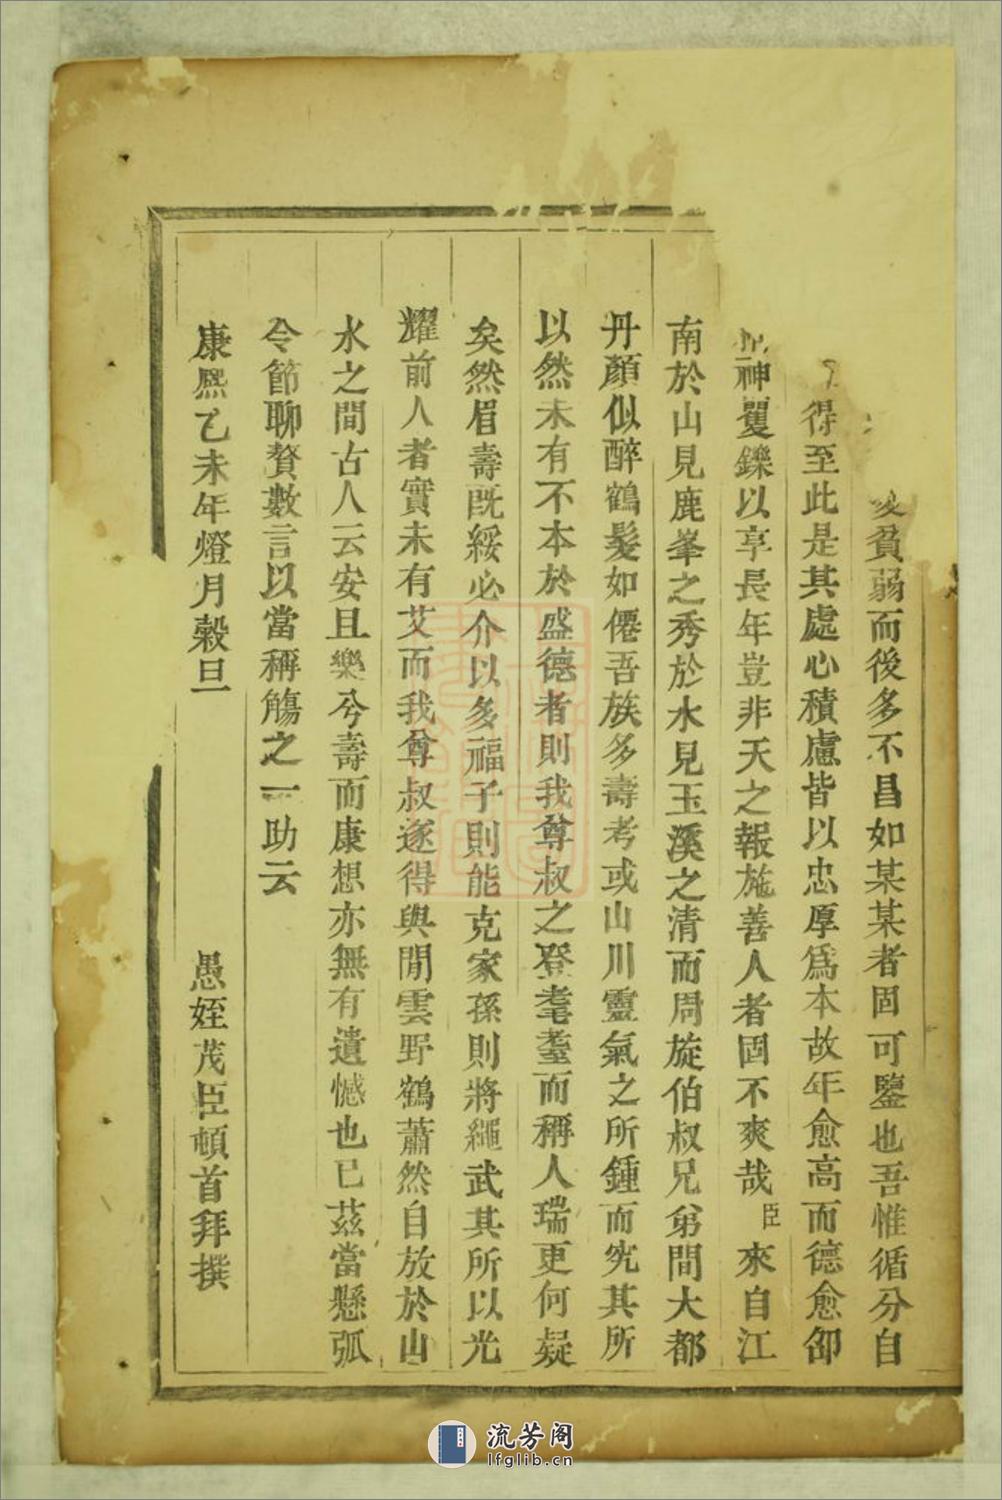 貧弱而後多不昌如某某者固可鑒也吾惟循分自
得至此是其處心積慮皆以忠厚爲本故年愈高而德愈卲
神矍鑠以享長年豈非天之報施善人者固不爽哉臣來自江
南於山見鹿峯之秀於水見玉溪之清而周旋伯叔兄弟間大都
丹顏似醉鶴髮如僊吾族多壽考或山川靈氣之所鍾而究其所
以然未有不本於盛德者則我尊叔之登耄耋而稱人瑞更何疑
矣然眉壽既綏必介以多福子則能克家孫則將繩武其所以光
耀前人者實未有艾而我尊叔遂得與閒雲野鶴蕭然自放於山
水之間古人云安且樂兮壽而康想亦無有遺憾也已茲當懸弧
令節聊贅數言以當稱觴之一助云
康熙乙未年燈月穀旦
愚姪茂臣頓首拜撰
流芳阁
lfglib.cn